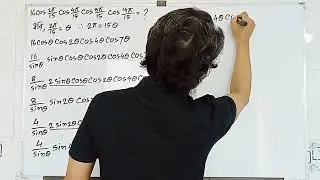 16cos 2π/15 cos 4π/15 cos 8π/15 cos 14π/15 = ?
ধরি, 2π/15 = θ ∴ 2π = 15θ
16cosθ cos2θ cos4θ cos7θ
16/sinθ sinθ cosθ cos2θ cos
8/sinθ 2sinθ cosθ cos2θ cos
8/sinθ sin2θ cos2θ cos
4/sinθ 2 sin2θ cos
4/sinθ sin
4θ cos